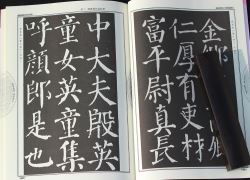 金鄉
仁厚有吏材
富平尉真長
中大夫殷英
童女英童集
呼顔郎是也